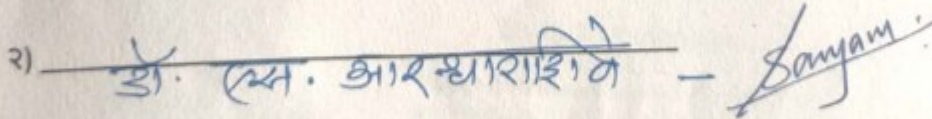 २) डॉ. एस. आर धाराशिवे - Sangam